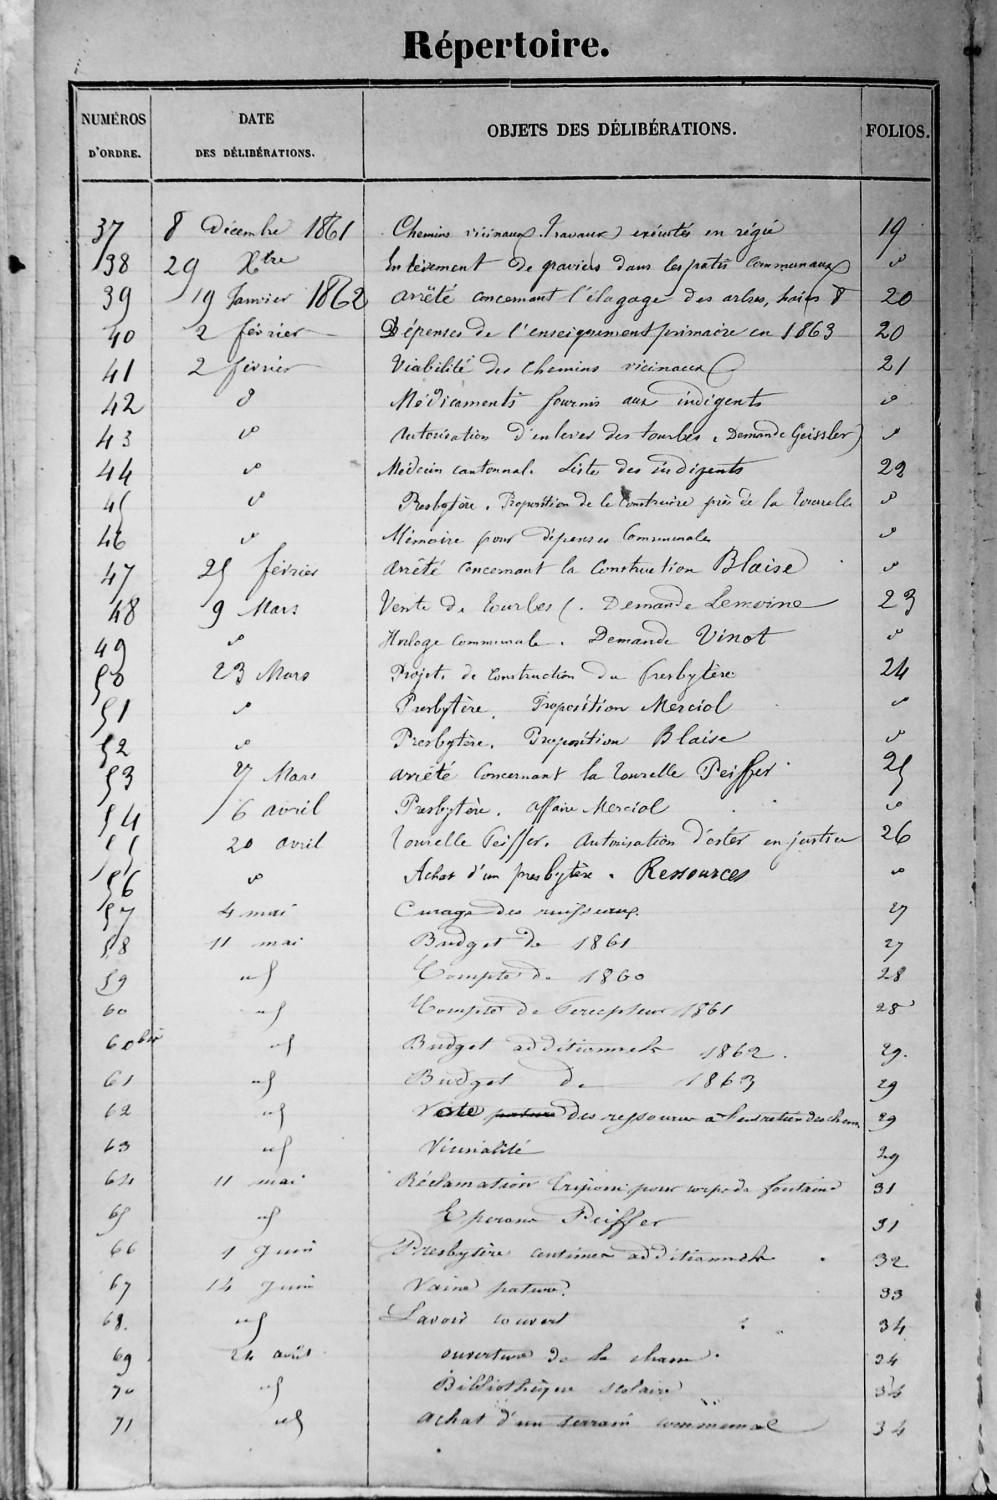 Répertoire.
NUMÉROS D'ORDRE. DATE DES DÉLIBÉRATIONS. OBJETS DES DÉLIBÉRATIONS. FOLIOS.
37 8 Décembre 1861 Chemins vicinaux (Travaux) exécutés en régie 19
38 29 Xbre Enlèvement de graviers dans les patis communaux d°
39 19 Janvier 1862 arrêté concernant l'élagage des arbres, haies & 20
40 2 février Dépenses de l'enseignement primaire en 1863 20
41 2 février Viabilité des chemins vicinaux 21
42 d° Médicaments fournis aux indigents d°
43 d° Autorisation d'enlever des tourbes, Demande Geissler d°
44 d° Médecin cantonnal. Liste des indigents 22
45 d° Presbytère. Proposition de le construire près de la Tourelle d°
46 d° Mémoire pour dépenses Communales d°
47 25 février arrêté concernant la Construction Blaise d°
48 9 Mars Vente de tourbes (. Demande Lemoine 23
49 d° Horloge Communale. Demande Vinot d°
50 23 Mars Projet de construction du Presbytère 24
51 d° Presbytère. Proposition Merciol d°
52 d° Presbytère. Proposition Blaise d°
53 27 Mars arrêté Concernant la tourelle Peiffer 25
54 6 avril Presbytère. affaire Merciol d°
55 20 avril tourelle Peiffer. Autorisation d'ester en justice 26
56 d° Achat d'un presbytère. Ressources d°
57 4 mai Curage des ruisseaux 27
58 11 mai Budget de 1861 27
59 id Compte de 1860 28
60 id Compte de Percepteur 1861 28
60 bis id Budget additionnel 1862. 29.
61 id Budget de 1863 29
62 id Vote des ressources à l'entretien des chem. 29
63 id Vicinalité 29
64 11 mai Réclamation pour corps de fontaine 31
65 id Eperon Peiffer 31
66 1 Juin Presbytère centimes additionnels 32
67 14 Juin Vaine pature. 33
68. id Lavoir couvert 34
69 24 août ouverture de la chasse. 34
70 id Bibliothèque scolaire 34
71 id achat d'un terrain communal 34